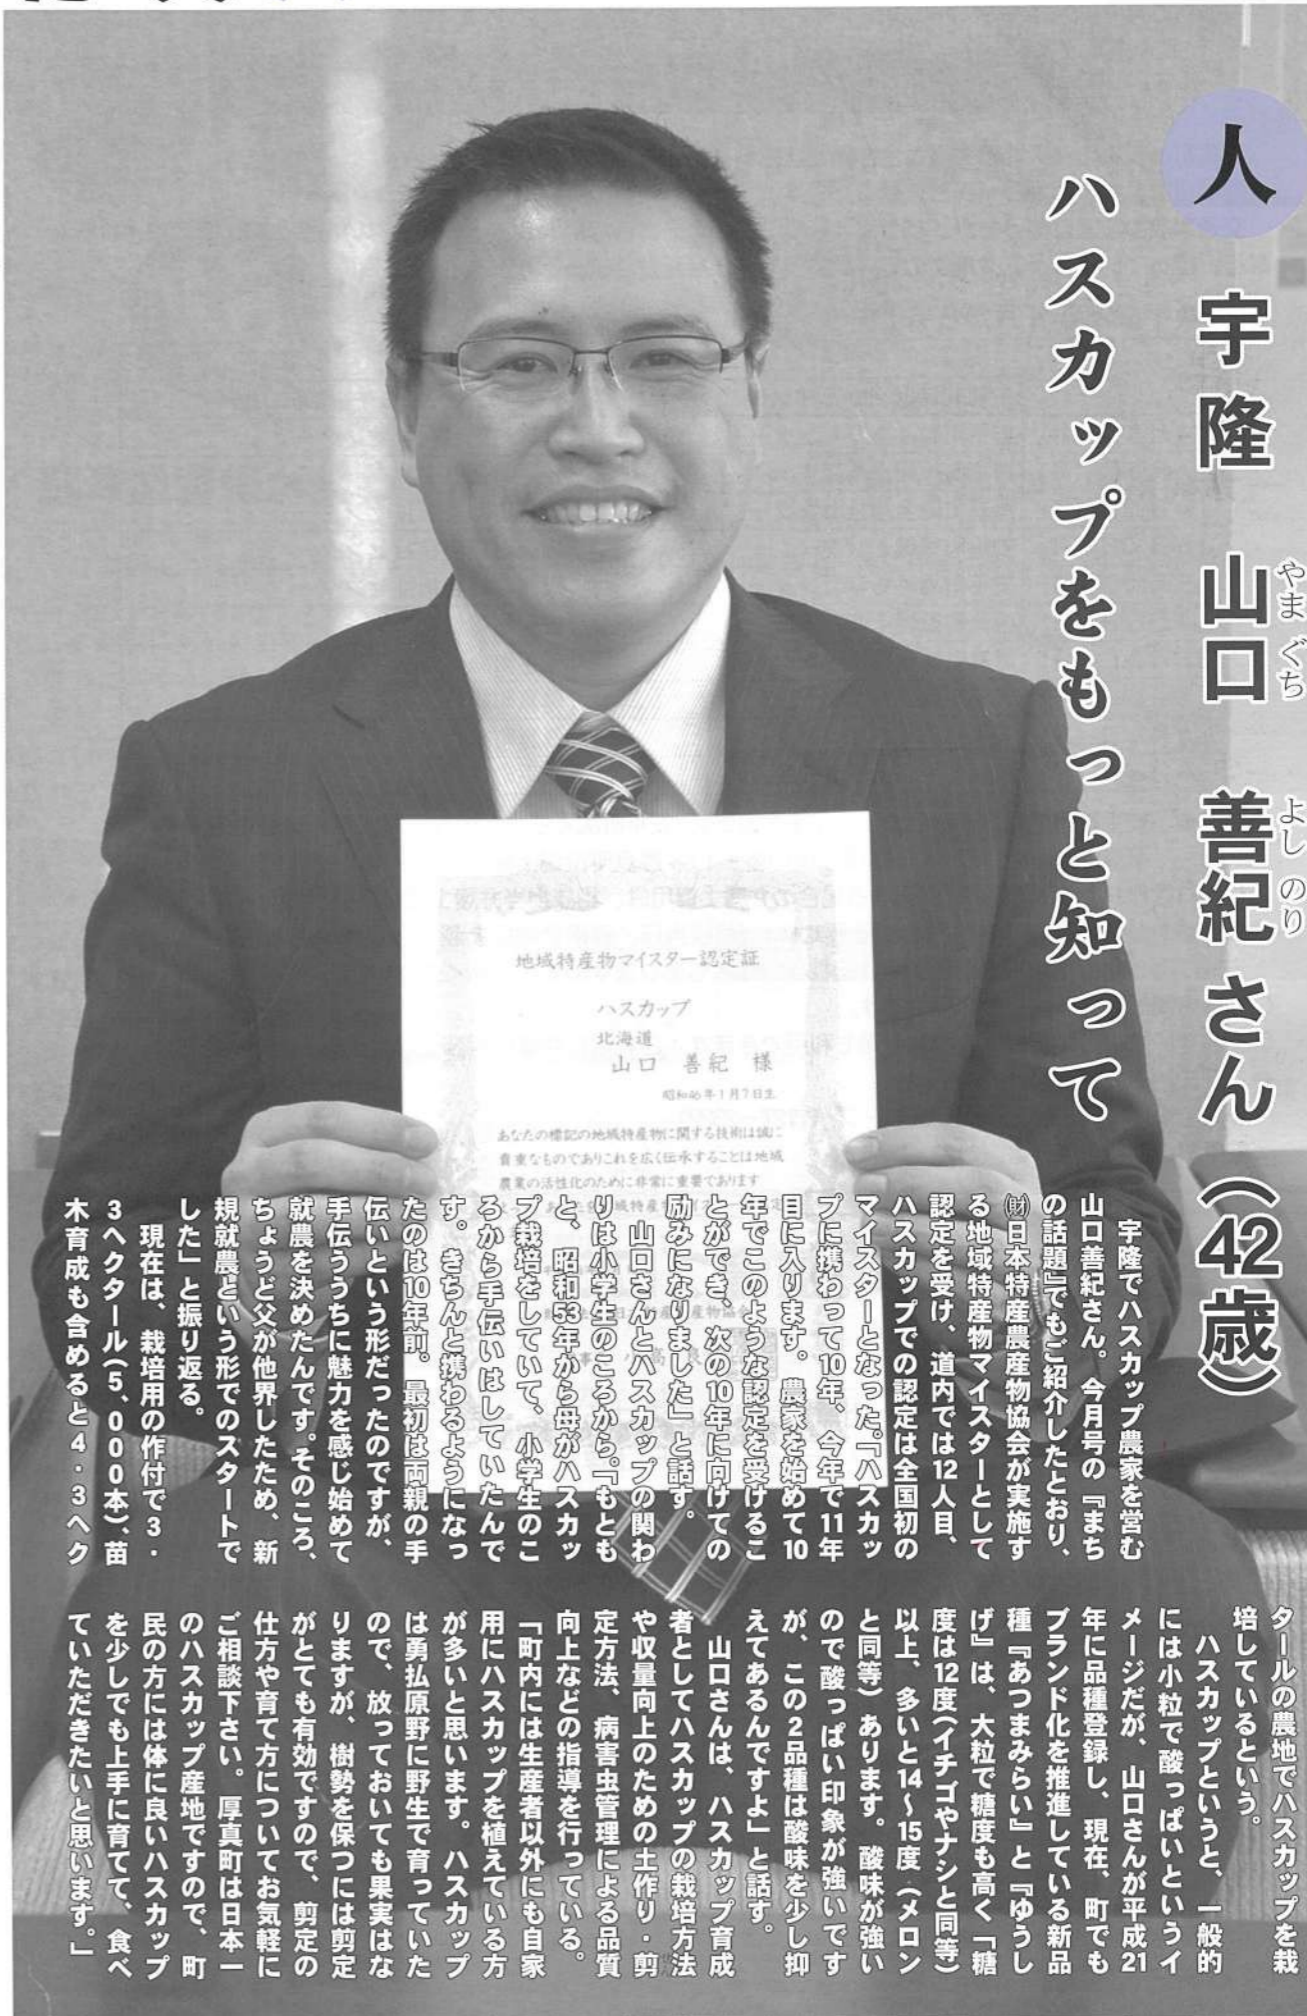 人
宇隆 山口 善紀さん(42歳)
やま ぐち よし のり
ハスカップをもっと知って
地域特産物マイスター認定証
ハスカップ
北海道
山口 善紀 様
昭和46年1月7日生
あなたの標記の地域特産物に関する技術は誠に
貴重なものでありこれを広く伝承することは地域
農業の活性化のために非常に重要であります
宇隆でハスカップ農家を営む
山口善紀さん。今月号の『まち
の話題』でもご紹介したとおり、
㈶日本特産農産物協会が実施す
る地域特産物マイスターとして
認定を受け、道内では12人目、
ハスカップでの認定は全国初の
マイスターとなった。「ハスカッ
プに携わって10年、今年で11年
目に入ります。農家を始めて10
年でこのような認定を受けるこ
とができ、次の10年に向けての
励みになりました」と話す。
山口さんとハスカップの関わ
りは小学生のころから。「もとも
と、昭和53年から母がハスカッ
プ栽培をしていて、小学生のこ
ろから手伝いはしていたんで
す。きちんと携わるようになっ
たのは10年前。最初は両親の手
伝いという形だったのですが、
手伝ううちに魅力を感じ始めて
就農を決めたんです。そのころ、
ちょうど父が他界したため、新
規就農という形でのスタートで
した」と振り返る。
現在は、栽培用の作付で3・
3ヘクタール(5、000本)、苗
木育成も含めると4・3ヘク
タールの農地でハスカップを栽
培しているという。
ハスカップというと、一般的
には小粒で酸っぱいというイ
メージだが、山口さんが平成21
年に品種登録し、現在、町でも
ブランド化を推進している新品
種『あつまみらい』と『ゆうし
げ』は、大粒で糖度も高く「糖
度は12度(イチゴやナシと同等)
以上、多いと14〜15度(メロン
と同等)あります。酸味が強い
ので酸っぱい印象が強いです
が、この2品種は酸味を少し抑
えてあるんですよ」と話す。
山口さんは、ハスカップ育成
者としてハスカップの栽培方法
や収量向上のための土作り・剪
定方法、病害虫管理による品質
向上などの指導を行っている。
「町内には生産者以外にも自家
用にハスカップを植えている方
が多いと思います。ハスカップ
は勇払原野に野生で育っていた
ので、放っておいても果実はな
りますが、樹勢を保つには剪定
がとても有効ですので、剪定の
仕方や育て方についてお気軽に
ご相談下さい。厚真町は日本一
のハスカップ産地ですので、町
民の方には体に良いハスカップ
を少しでも上手に育てて、食べ
ていただきたいと思います。」